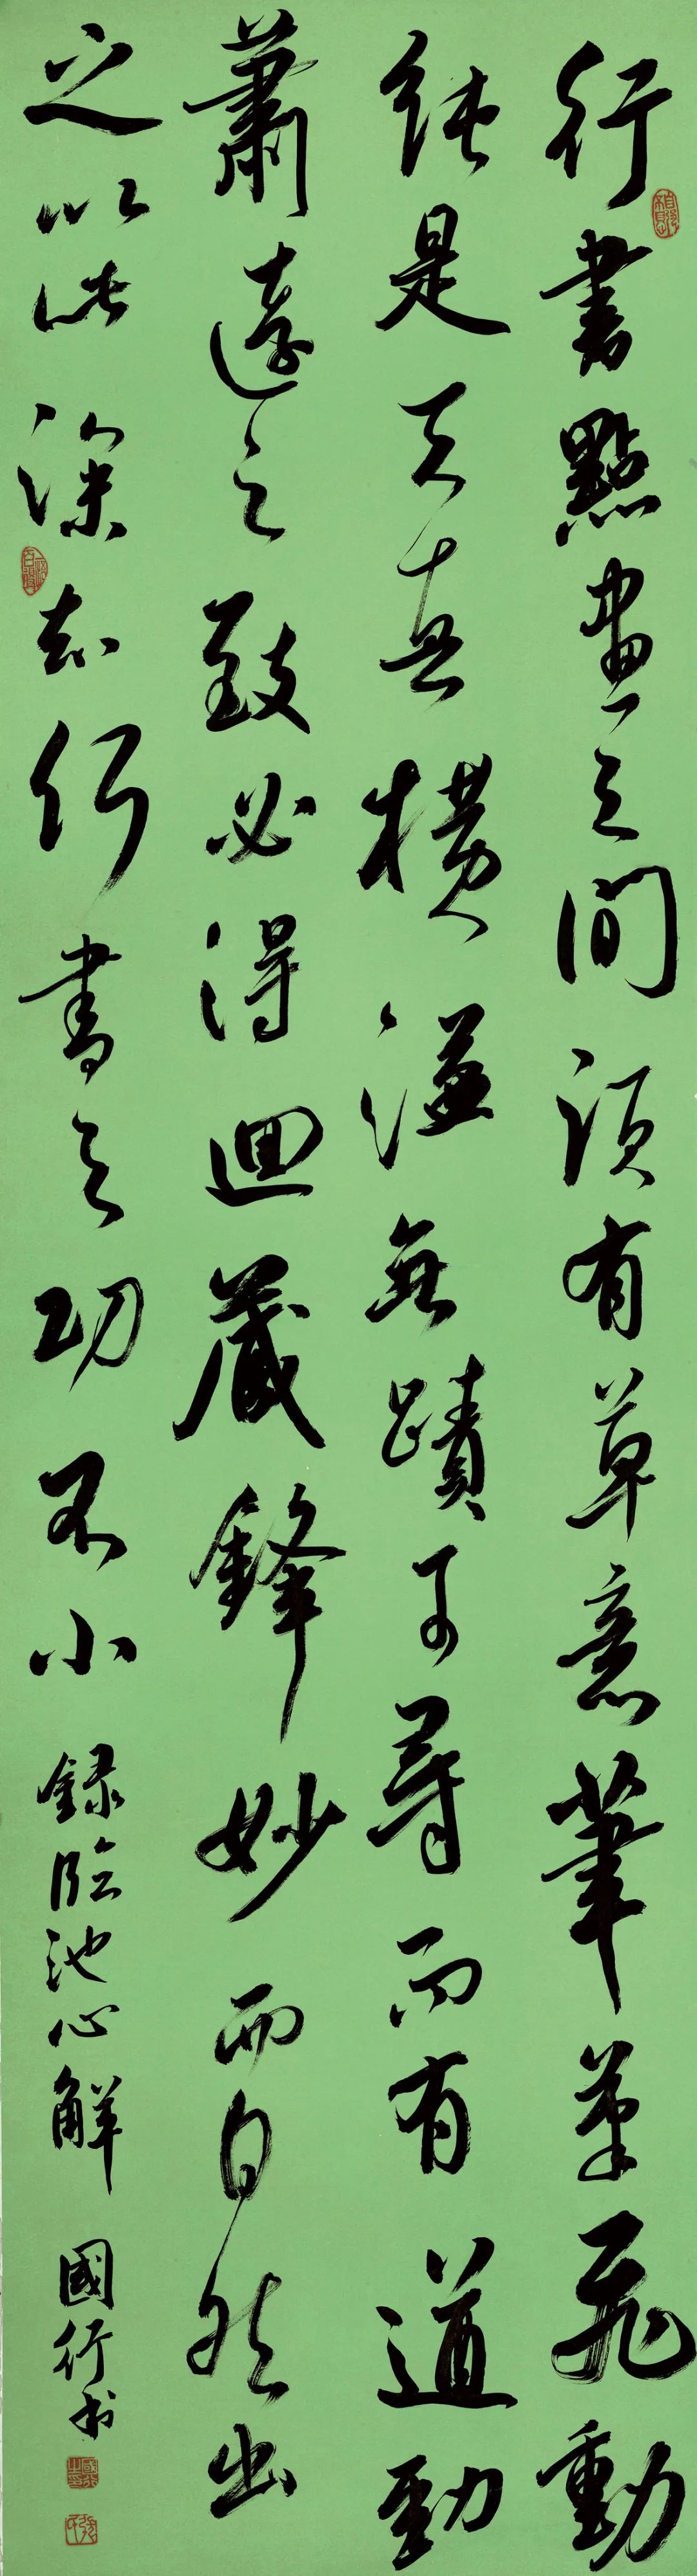 行書點畫之間須有草意筆筆飛動
純是天真橫溢無蹟可尋而有遒勁
蕭遠之致必得迴藏鋒妙而自然出
之以此深知行書之功不小 錄臨池心解 國行書